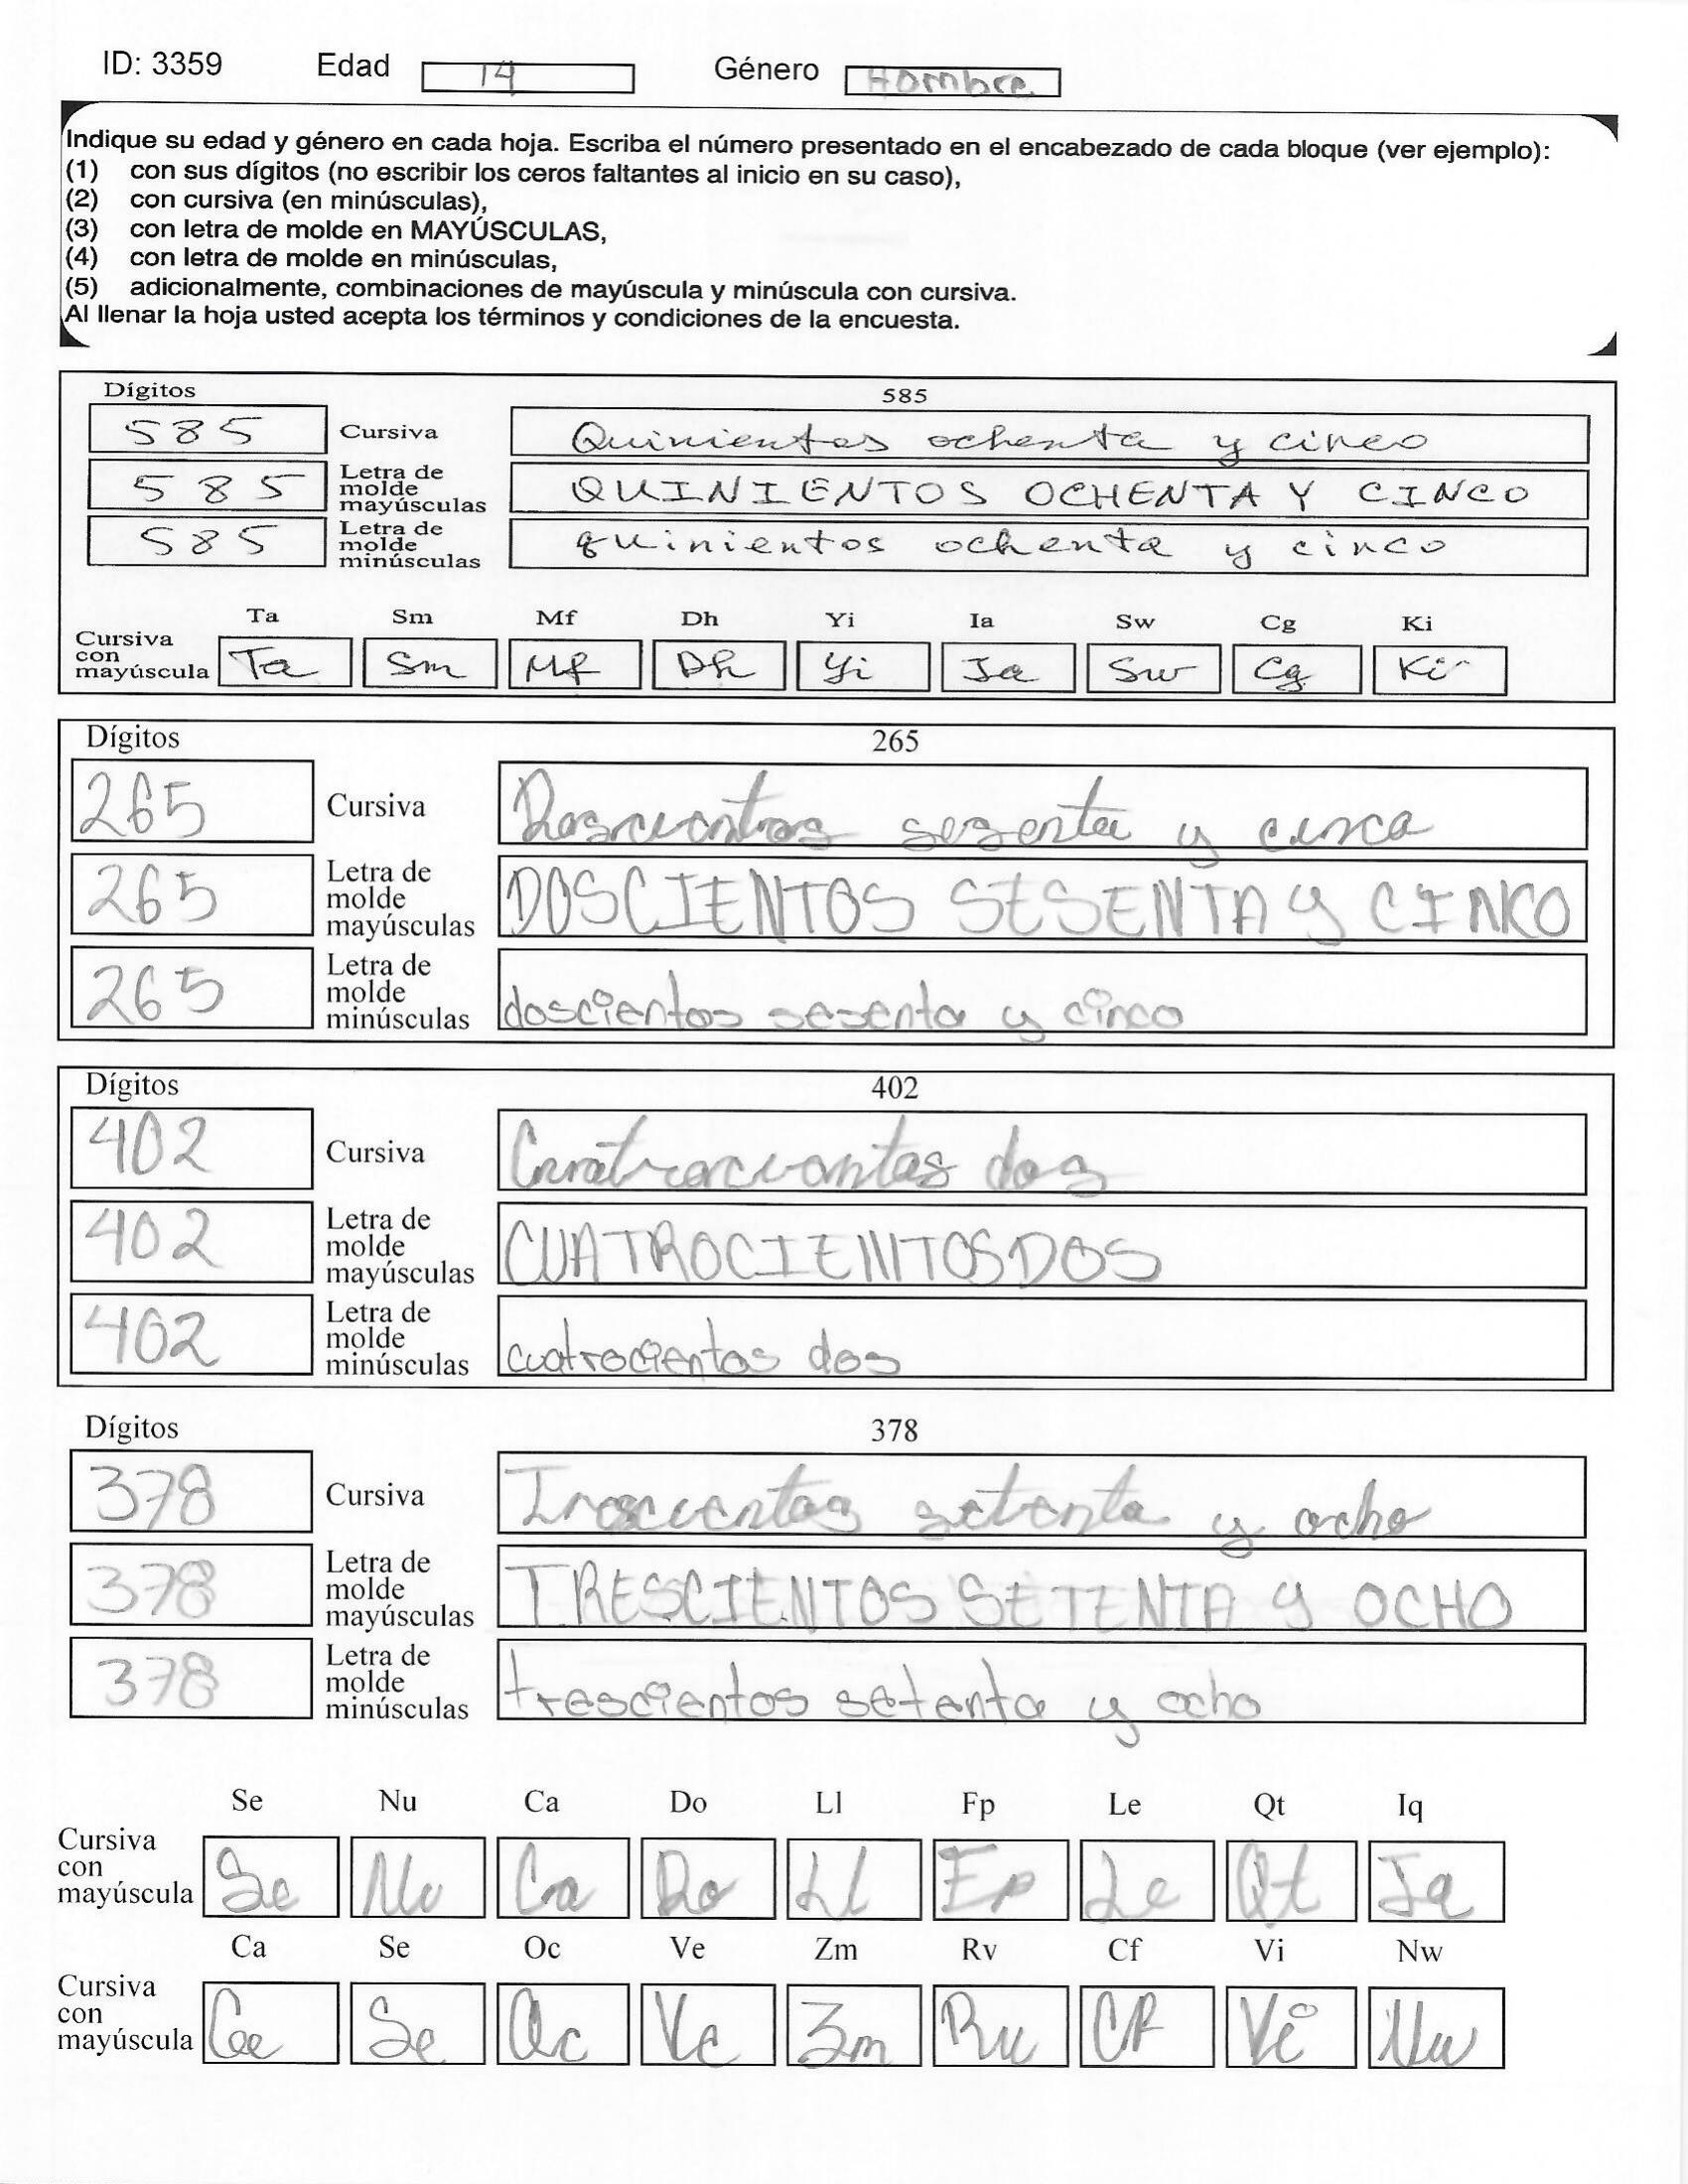 ID: 3359 Edad 14 Género Hombre
Indique su edad y género en cada hoja. Escriba el número presentado en el encabezado de cada bloque (ver ejemplo):
(1) con sus dígitos (no escribir los ceros faltantes al inicio en su caso),
(2) con cursiva (en minúsculas),
(3) con letra de molde en MAYÚSCULAS,
(4) con letra de molde en minúsculas,
(5) adicionalmente, combinaciones de mayúscula y minúscula con cursiva.
Al llenar la hoja usted acepta los términos y condiciones de la encuesta.
Dígitos 585
585 Cursiva Quinientos ochenta y cinco
585 Letra de molde mayúsculas QUINIENTOS OCHENTA Y CINCO
585 Letra de molde minúsculas quinientos ochenta y cinco
Ta Sm Mf Dh Yi Ia Sw Cg Ki
Cursiva con mayúscula Ta Sm Mf Dh Yi Ia Sw Cg Ki
Dígitos 265
265 Cursiva Doscientos sesenta y cinco
265 Letra de molde mayúsculas DOSCIENTOS SESENTA y CINCO
265 Letra de molde minúsculas doscientos sesenta y cinco
Dígitos 402
402 Cursiva Cuatrocientos dos
402 Letra de molde mayúsculas CUATROCIENTOS DOS
402 Letra de molde minúsculas cuatrocientos dos
Dígitos 378
378 Cursiva Trescientos setenta y ocho
378 Letra de molde mayúsculas TRESCIENTOS SETENTA y OCHO
378 Letra de molde minúsculas trescientos setenta y ocho
Se Nu Ca Do Ll Fp Le Qt Iq
Cursiva con mayúscula Se Nu Ca Do Ll Fp Le Qt Iq
Ca Se Oc Ve Zm Rv Cf Vi Nw
Cursiva con mayúscula Ca Se Oc Ve Zm Rv Cf Vi Nw